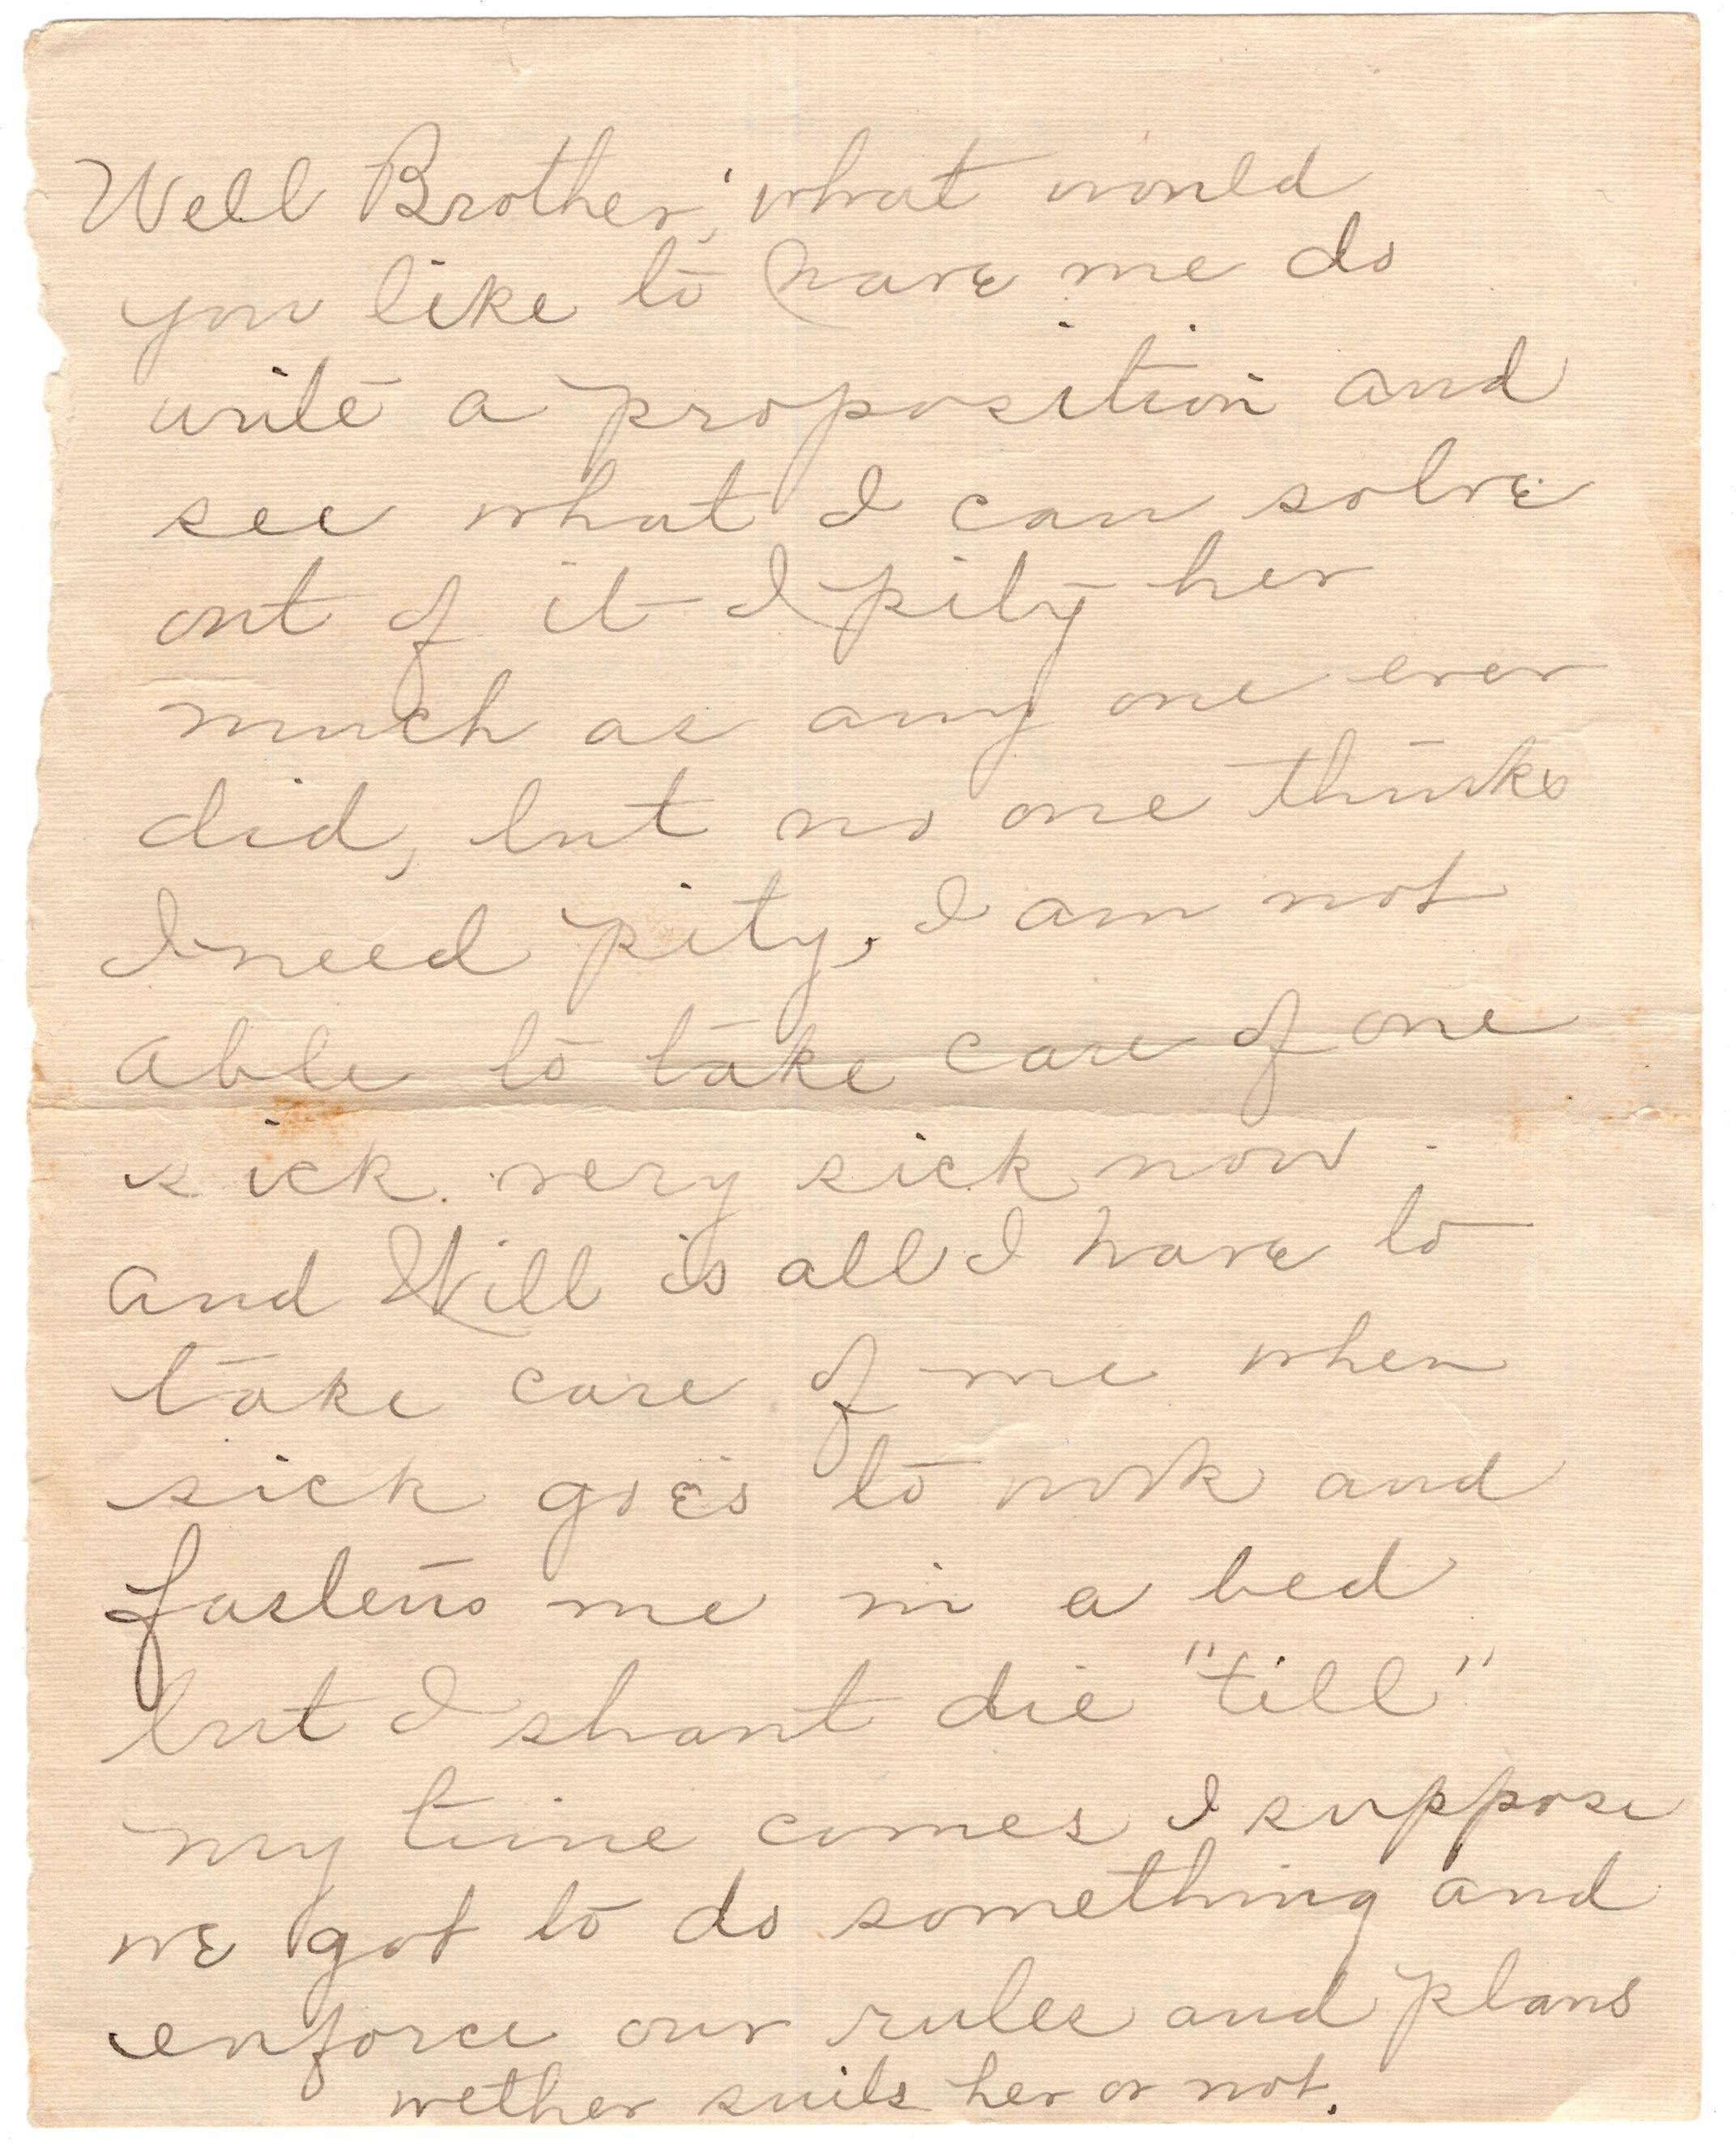 Well Brother, what would
you like to have me do
write a proposition and
see what I can solve
out of it I pity her
much as any one ever
did, but no one thinks
I need pity, I am not
able to take care of one
sick. very sick now.
and Will is all I have to
take care of me when
sick goes to work and
fastens me in a bed
but I shant die "till"
my time comes I suppose
we got to do something and
enforce our rules and plans
wether suits her or not.